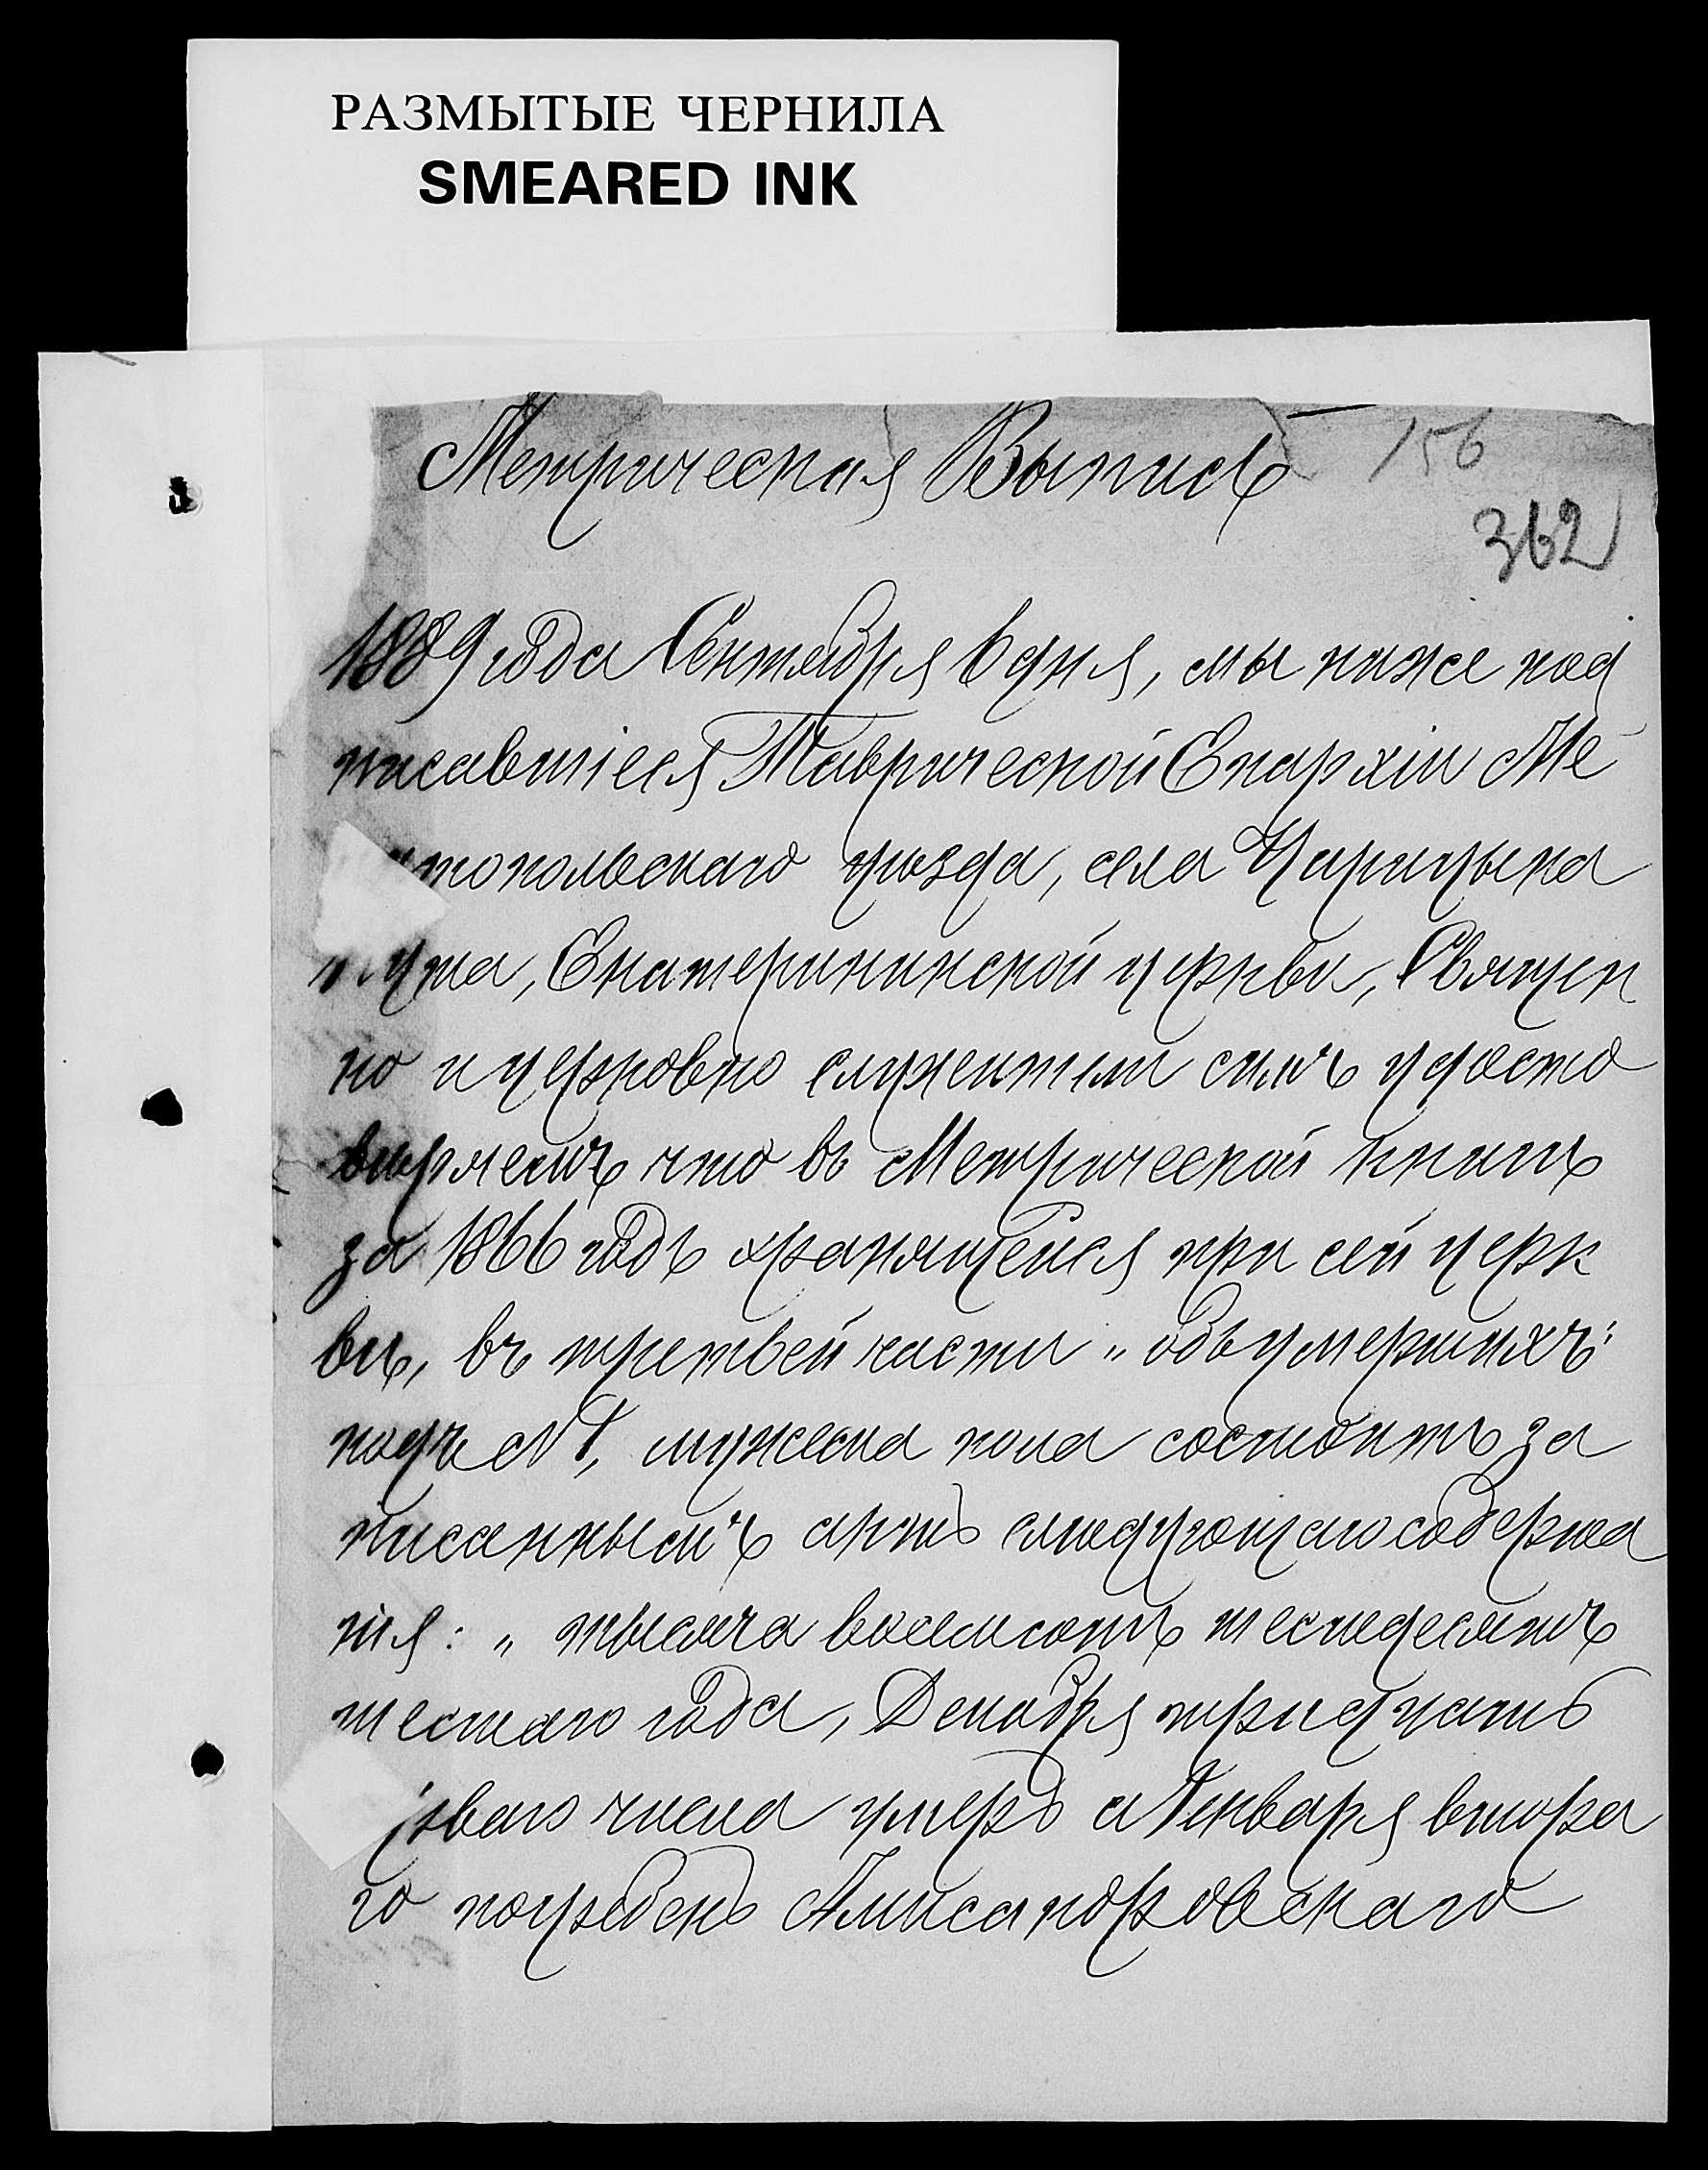 РАЗМЫТЫЕ ЧЕРНИЛА
SMEARED INK
Метрическая Выпись
156
362
1889 года Сентября 6 дня, мы ниже под
писавшіеся Таврической Епархіи Ме
топольскаго уѣзда, села Царицына
Екатерининской церкви, Священ
но и церковно служители симъ удосто
вѣряемъ что въ Метрической книгѣ
за 1866 годъ хранящейся при сей церк
ви, въ третьей части „объ умершихъ"
подъ № 1, мужеска пола состоитъ за
писаннымъ актъ слѣдующаго содержа
нія: „тысяча восемсотъ шестдесятъ
шестаго года, Декабря тридцать
рваго числа умеръ а Января втора
го погребенъ Алксандровскаго